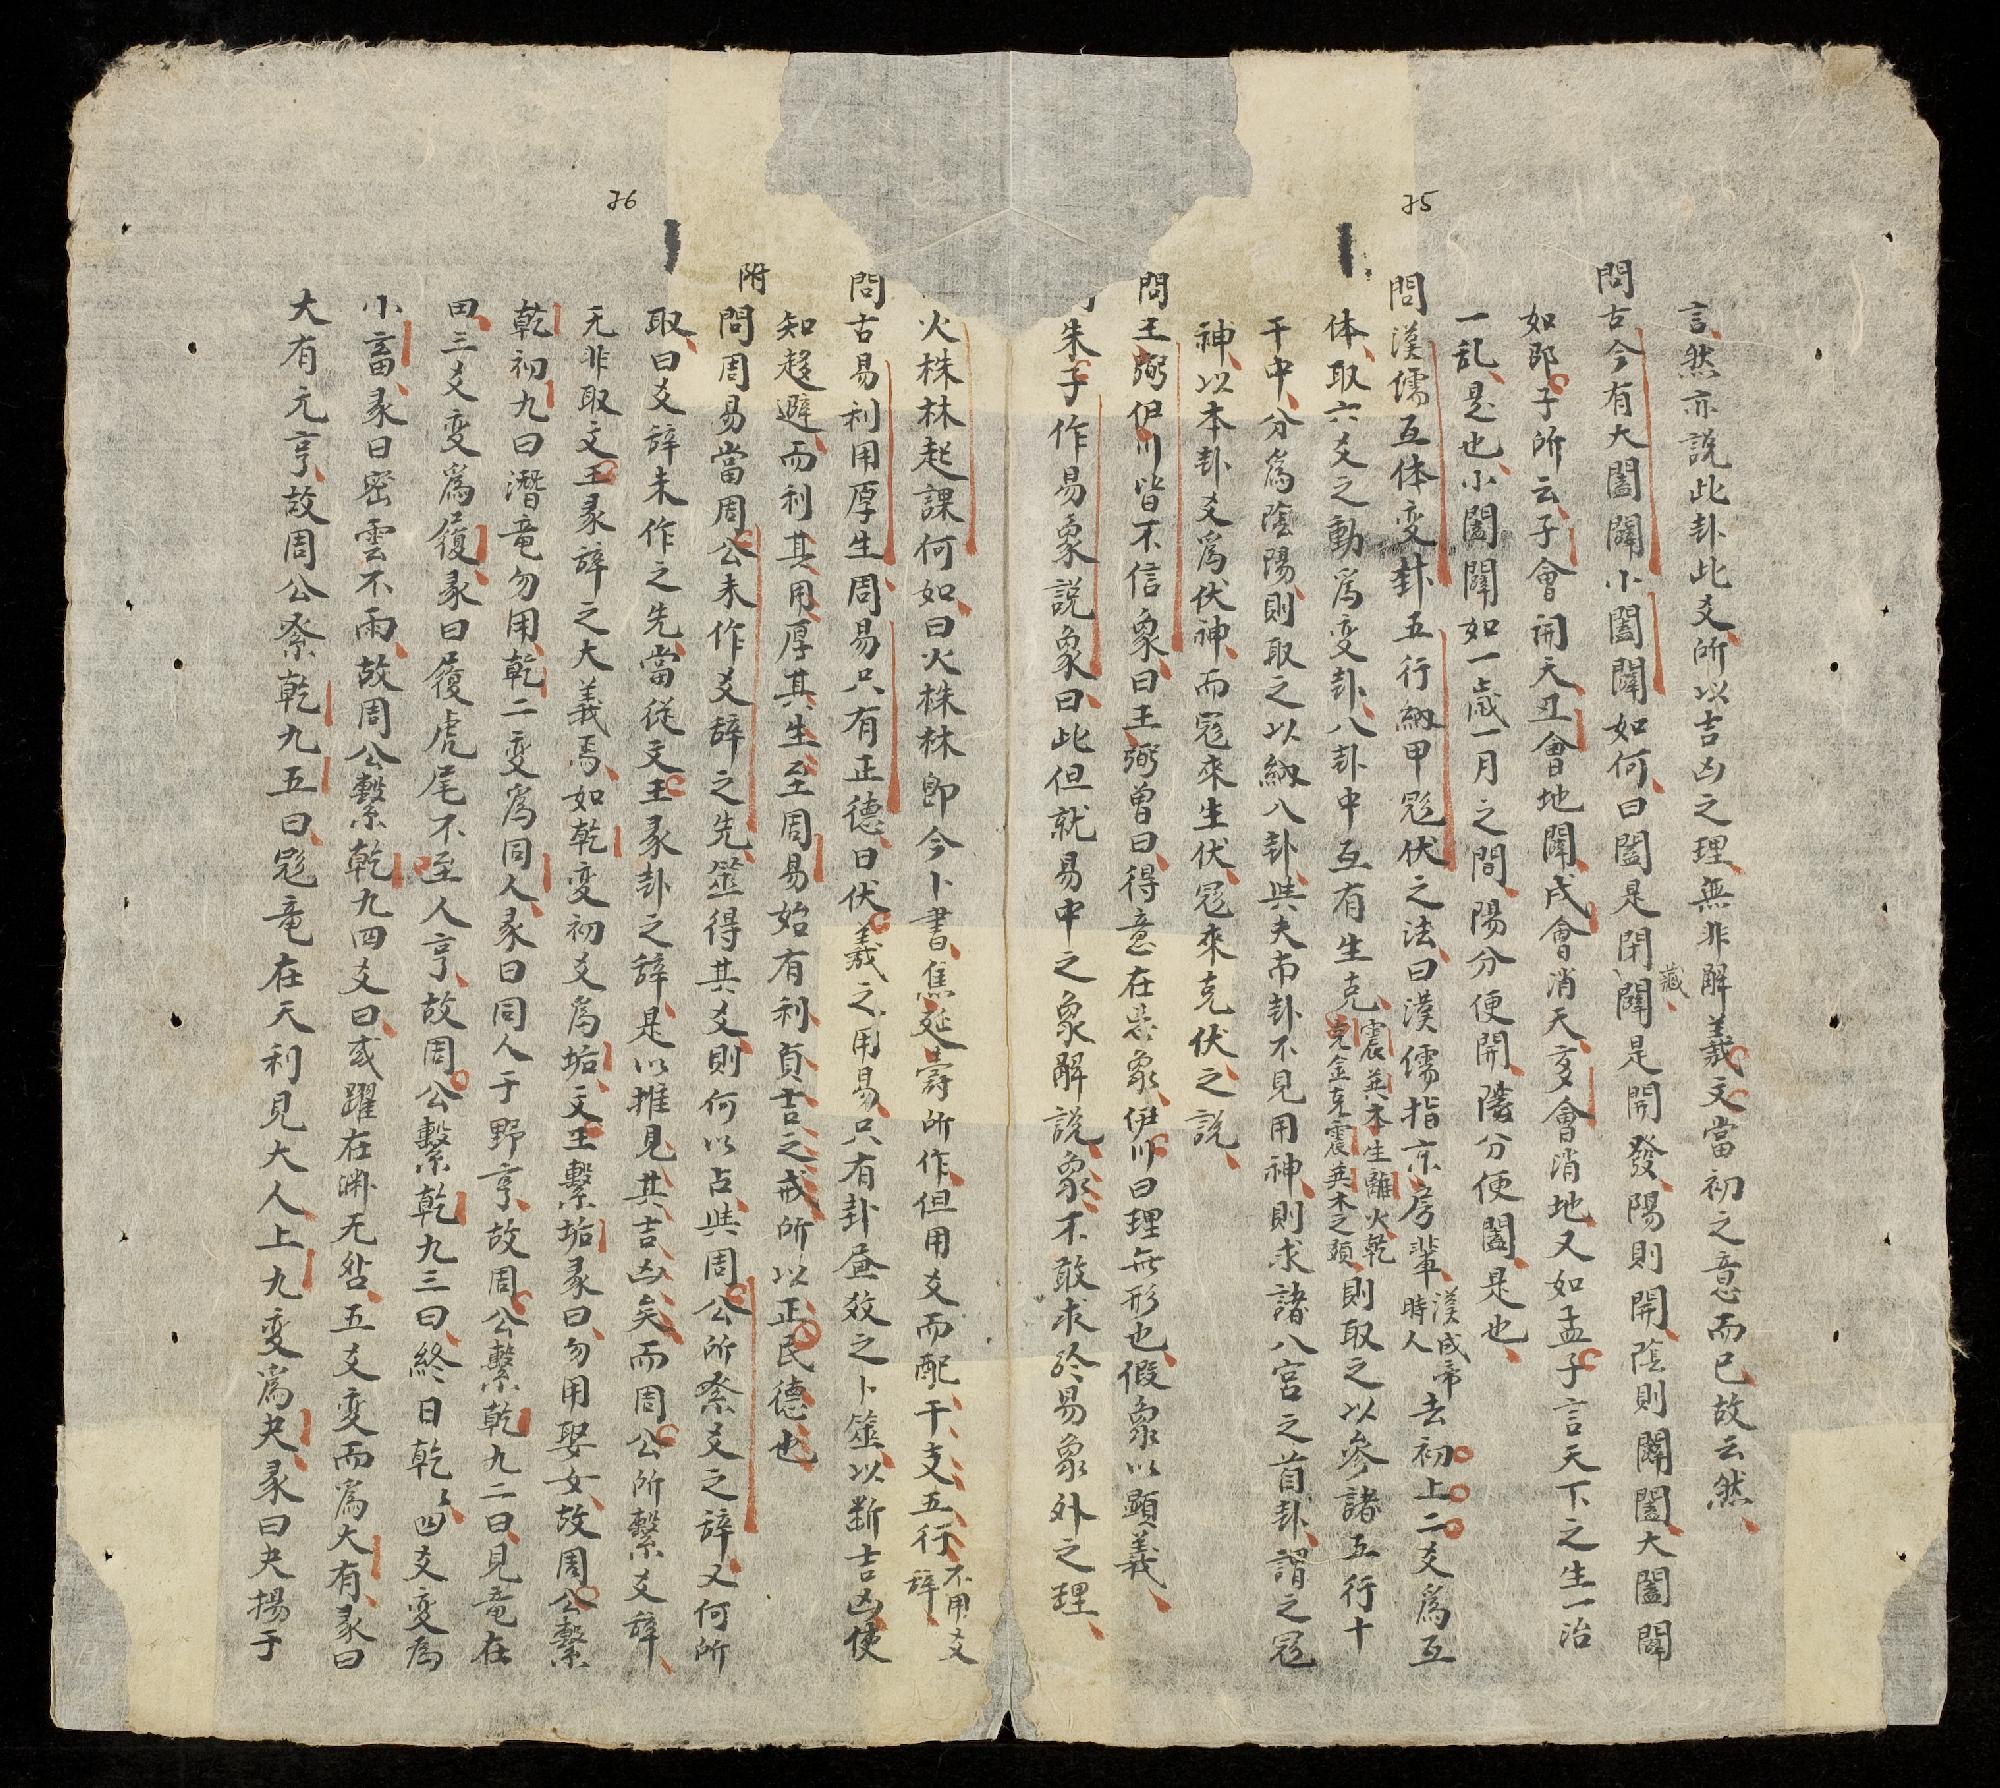 75
言然亦説此卦此爻所以吉凶之理無非解羲文當初之意而已故云然
問古今有大闔闢小闔闢如何曰闔是閉藏闢是開發陽則開陰則闔闢大闔闢
如邵子所云子會開天丑會地闢戌會消天亥會消地又如孟子言天下之生一治
一乱是也小闔闢如一歲一月之間陽分便開陰分便闔是也
問漢儒互体变卦五行納甲冦伏之法曰漢儒指京房輩漢成帝時人去初上二爻爲互
体取六爻之動爲变卦八卦中互有生克震巽木生離火乾克金克震巽木之類則取之以參諸五行十
干中分爲陰陽則取之以納八卦與夫布卦不見用神則求諸八宮之首卦謂之冦
神以本卦爻爲伏神而冦來生伏冦來克伏之説
問王弼伊川皆不信象曰王弼曽曰得意在忘象伊川曰理無形也假象以顕義
朱子作易象説象曰此但就易中之象解説象不敢求於易象外之理
76
火株林起課何如曰火株林即今卜書焦延壽所作但用爻而配干支五行不用爻辞
問古易利用厚生周易只有正德曰伏羲之用易只有卦晝效之卜筮以断吉凶使
知趍避而利其用厚其生至周易始有利貞吉之戒所以正民德也
附問周易當周公未作爻辞之先筮得其爻則何以占與周公所繫爻之辞又何所
取曰爻辞未作之先當從文王彖卦之辞是以推見其吉凶矣而周公所繫爻辞
无非取文王彖辞之大義焉如乾变初爻爲垢文王繫垢彖曰勿用娶女故周公繫
乾初九曰潛竜勿用乾二变爲同人彖曰同人于野亨故周公繫乾九二曰見竜在
田三爻变爲履彖曰履虎尾不咥人亨故周公繫乾九三曰終日乾〻四爻变爲
小畜彖曰密雲不雨故周公繫乾九四爻曰或躍在渊无咎五爻变而爲大有彖曰
大有元亨故周公繫乾九五曰飛竜在天利見大人上九变爲夬彖曰夬揚于